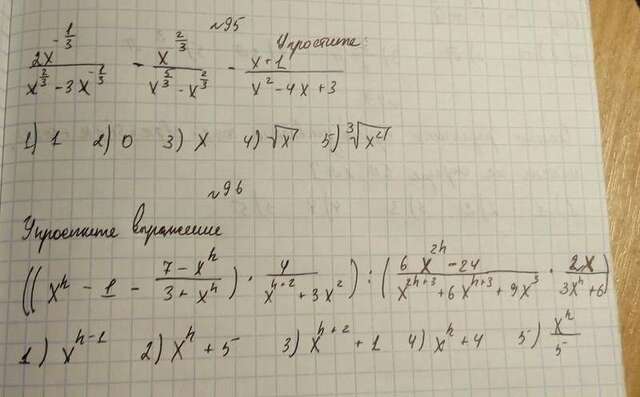 №95
Упростите:
2x^(-1/3) / (x^(2/3) - 3x^(-1/3)) - x^(2/3) / (x^(5/3) - x^(2/3)) - (x+1) / (x² - 4x + 3)
1) 1 2) 0 3) x 4) √x 5) ∛x²
№96
Упростите выражение
((x^h - 1 - (7 - x^h) / (3 + x^h)) · 4 / (x^(h+2) + 3x²)) : ((6x^(2h) - 24) / (x^(2h+3) + 6x^(h+3) + 9x³) · 2x / (3x^h + 6))
1) x^(h-1) 2) x^h + 5 3) x^(h+2) + 1 4) x^h + 4 5) x^h / 5